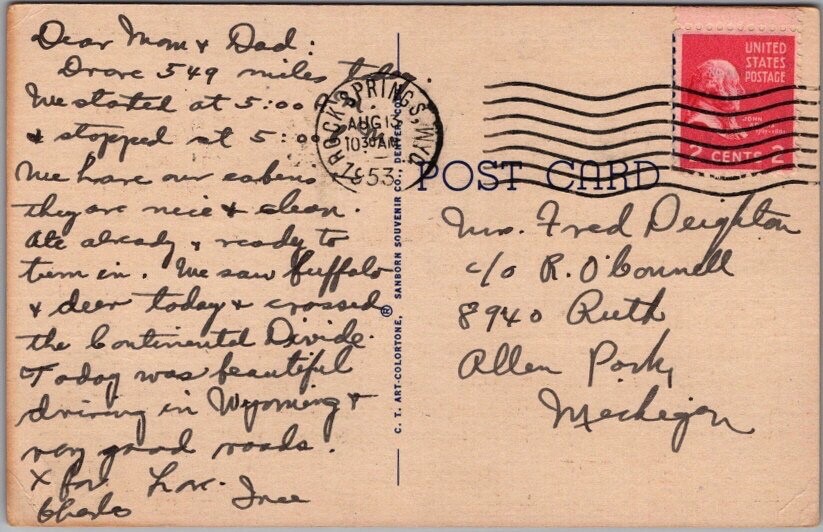 Dear Mom & Dad:
Drove 549 miles
We started at 5:00
& stopped at 5:00
We have our cabins
they are nice & clean.
Ate already & ready to
turn in. We saw buffalo
& deer today & crossed
the Continental Divide.
Today was beautiful
driving in Wyoming &
very good roads.
X for Love.
Charles
ROCK SPRINGS, WYO.
AUG 13
10 30 AM
1953
C. T. ART-COLORTONE, ® SANBORN SOUVENIR CO., DENVER,
UNITED
STATES
POSTAGE
JOHN
2 CENTS 2
POST CARD
Mrs. Fred Deighton
c/o R. O'Connell
8940 Ruth
Allen Park,
Michigan